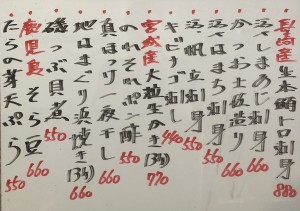 長崎産 生本鮪トロ刺身 880
活〆しまあじ刺身 660
かつお土佐造り 660
活帆立刺身 550
キビナゴ刺し 440
宮城産 大粒生かき(3ケ) 770
のれそれポン酢 550
真ほっけ一夜干し 660
地はまぐり浜焼き(3ケ) 660
磯つぶ貝煮 550
鹿児島 そら豆 660
たらの芽天ぷら 550